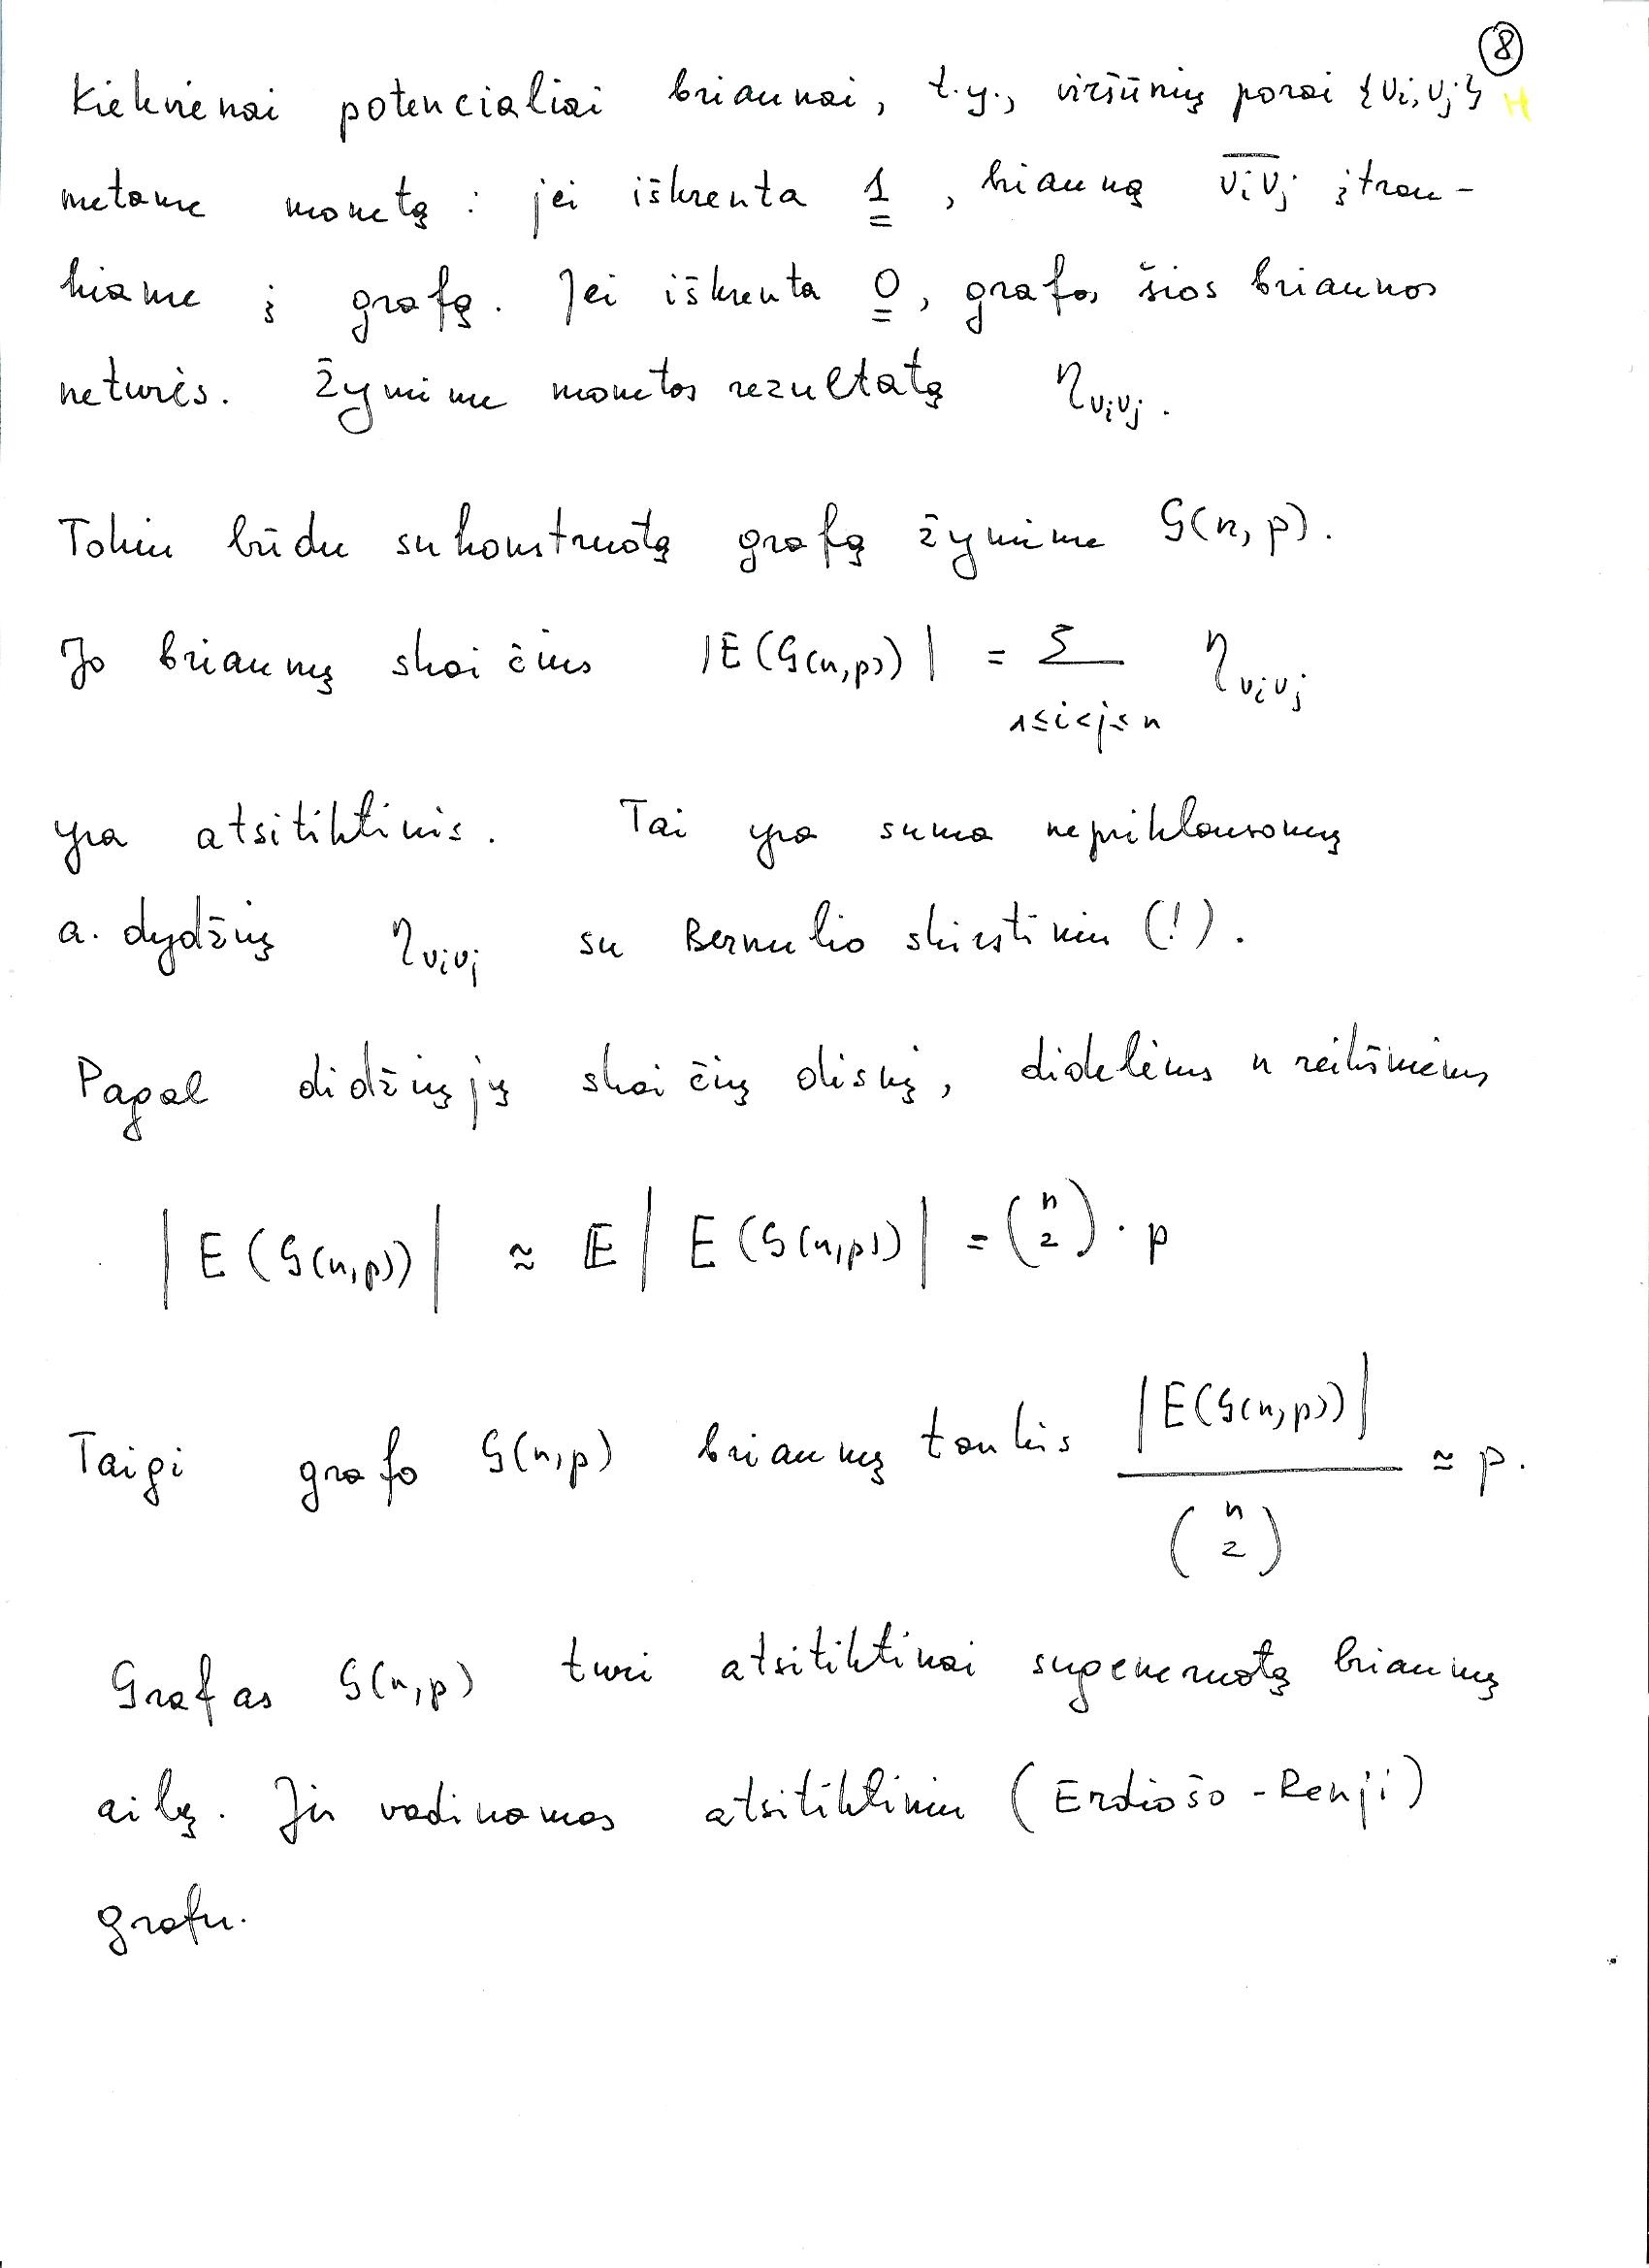 8
Kiekvienai potencialiai briaunai, t.y., viršūnių porai {vi, vj} H
metame monetą : jei iškrenta 1, briauną vivj įtrau-
kiame į grafą. Jei iškrenta 0, grafas šios briaunos
neturės. Žymime monetos rezultatą ηvivj.
Tokiu būdu sukonstruotą grafą žymime G(n, p).
Jo briaunų skaičius |E(G(n,p))| = Σ ηvivj
1≤i<j≤n
yra atsitiktinis. Tai yra suma nepriklausomų
a. dydžių ηvivj su Bernulio skirstiniu (!).
Papal didžiųjų skaičių dėsnį, didelėms n reikšmėms
|E(G(n,p))| ≈ 𝔼|E(G(n,p))| = (n 2) · p
Taigi grafo G(n,p) briaunų tankis |E(G(n,p))| / (n 2) ≈ p.
Grafas G(n,p) turi atsitiktinai sugeneruotą briaunų
aibę. Jis vadinamas atsitiktiniu (Erdiošo - Renji)
grafu.